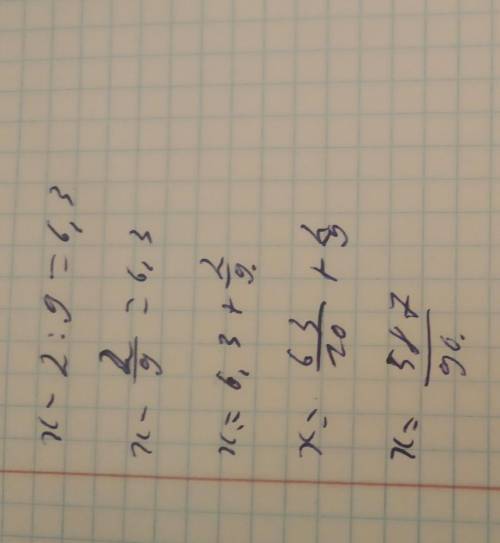 x - 2 : 9 = 6,3
x - 2/9 = 6,3
x = 6,3 + 2/9.
x = 63/10 + 2/9
x = 587/90.